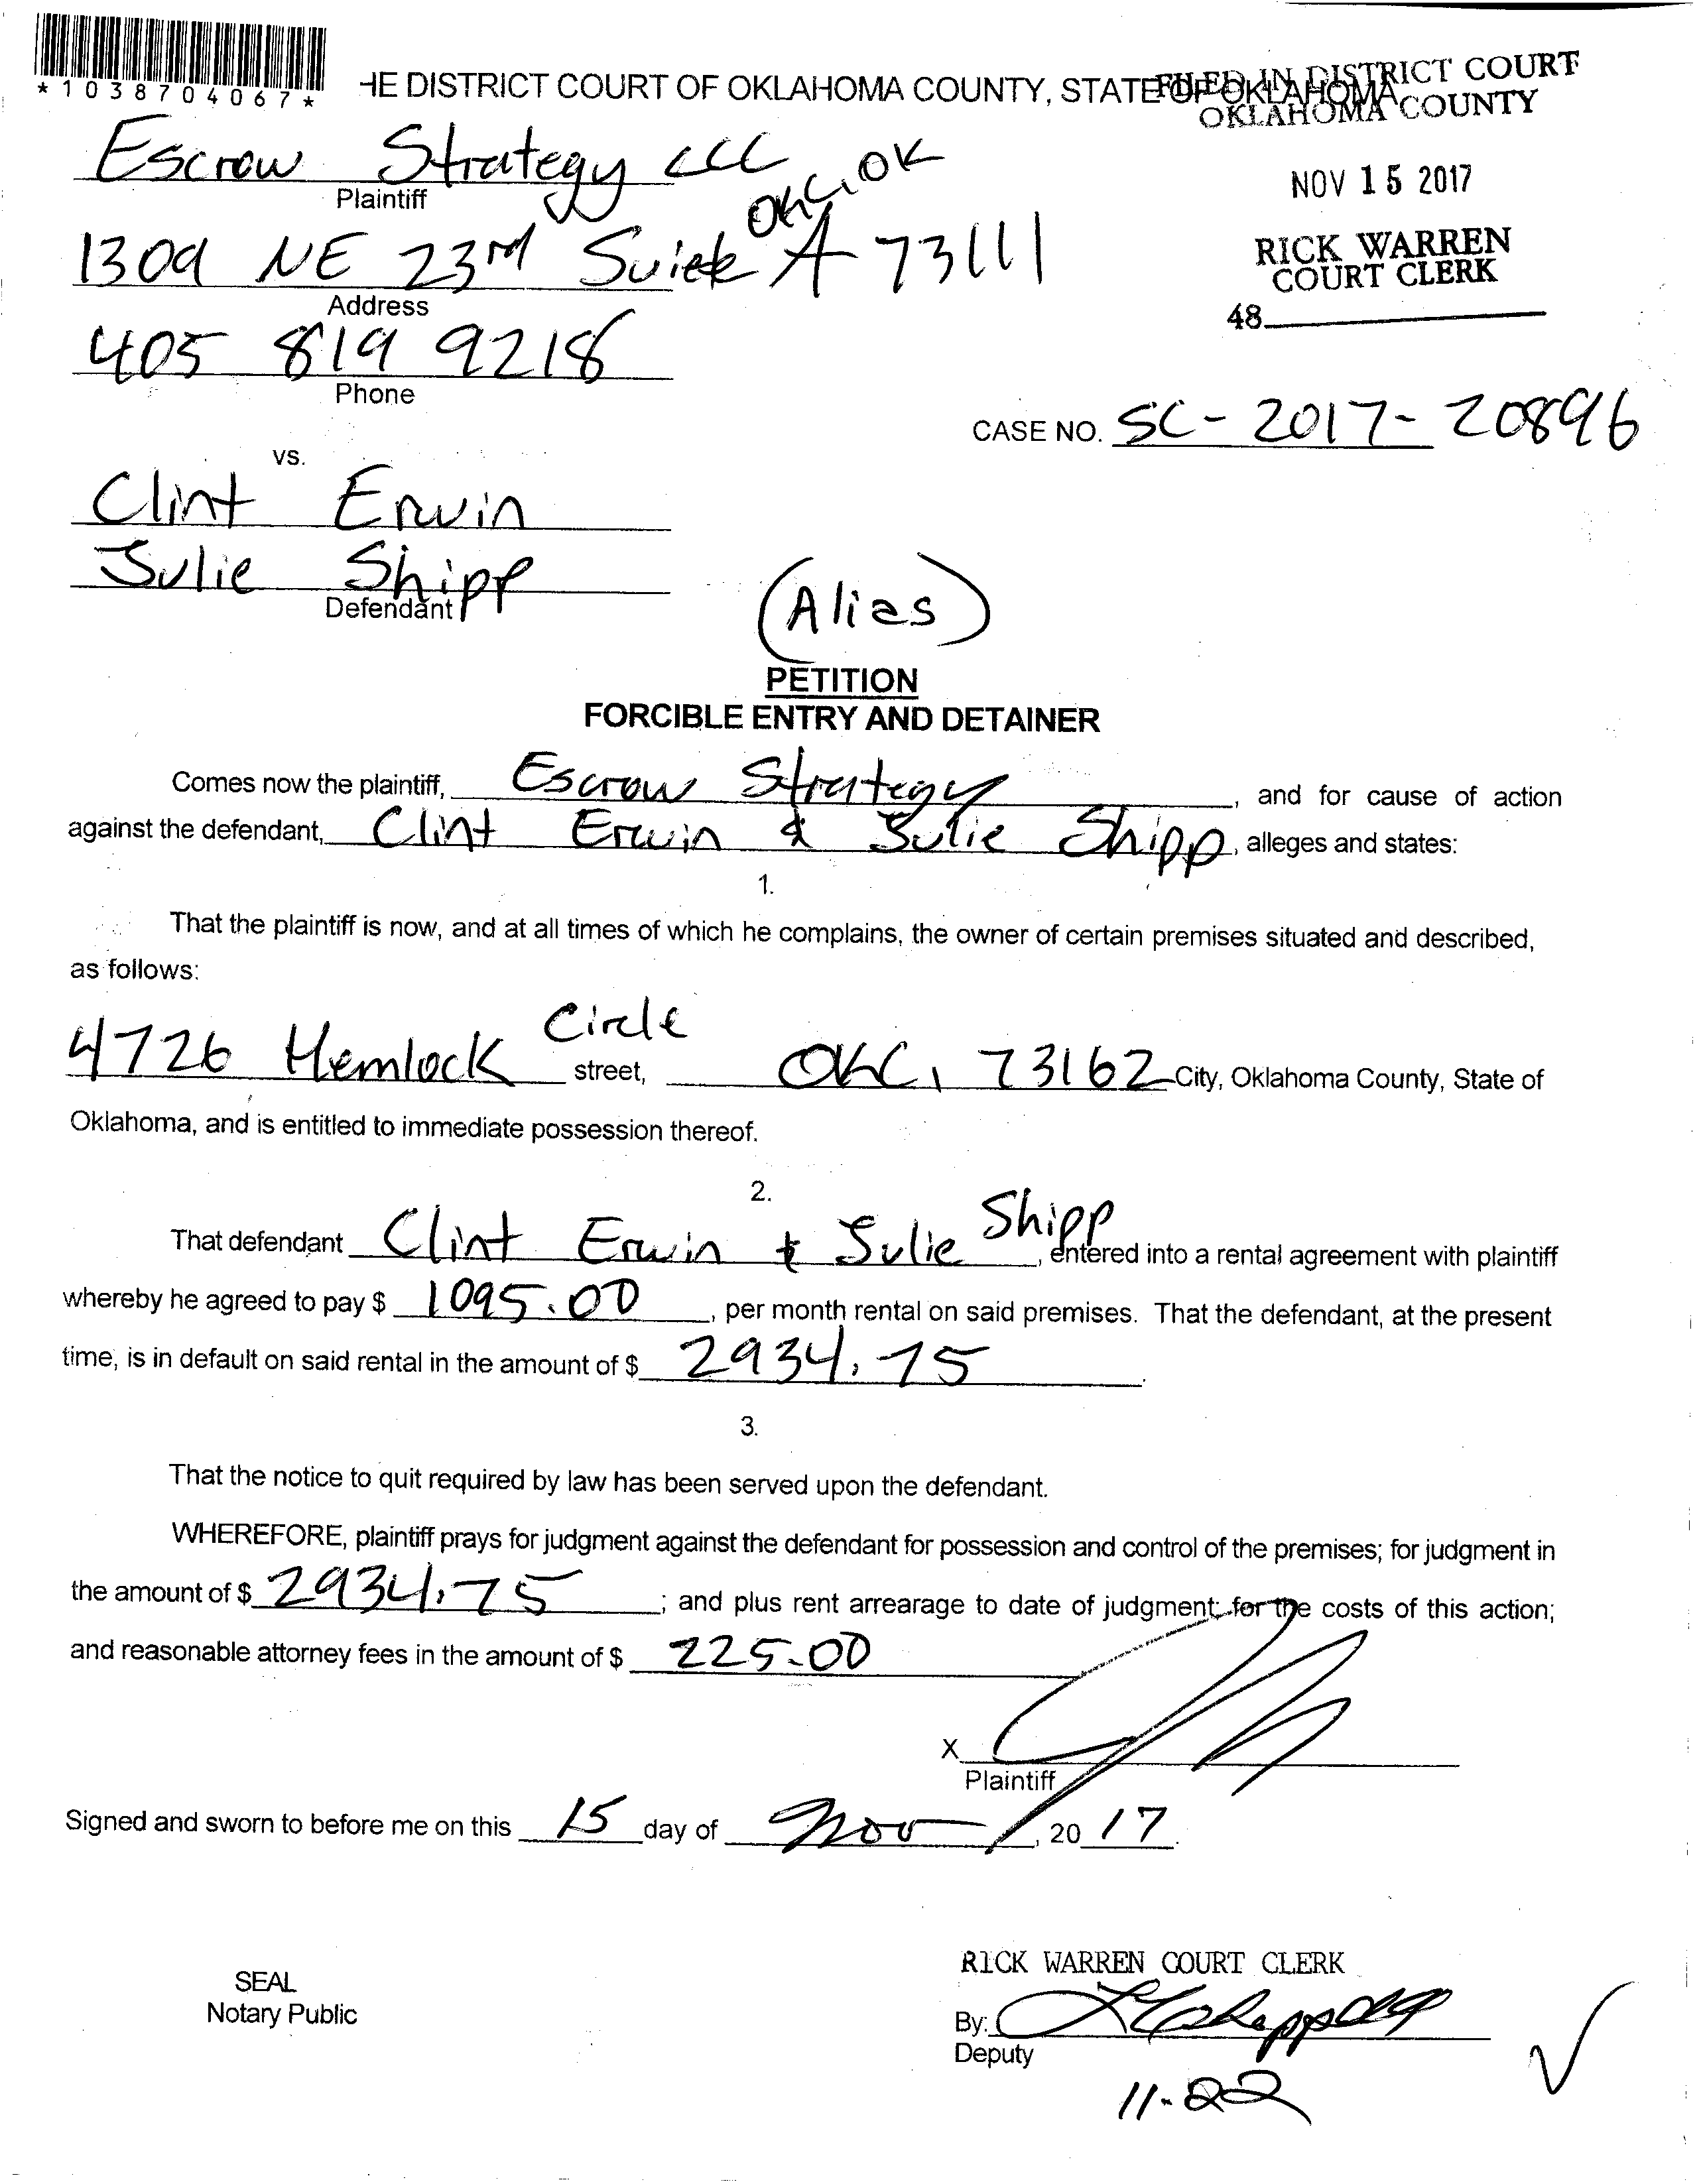 *1038704067*
HE DISTRICT COURT OF OKLAHOMA COUNTY, STATE OF OKLAHOMA
FILED IN DISTRICT COURT
OKLAHOMA COUNTY
Escrow Strategy LLC
Plaintiff
OKC, OK
NOV 15 2017
1309 NE 23rd Suite A 73111
Address
RICK WARREN
COURT CLERK
48
405 819 9218
Phone
CASE NO. SC-2017-20896
vs.
Clint Erwin
Julie Shipp
Defendant
(Alias)
PETITION
FORCIBLE ENTRY AND DETAINER
Comes now the plaintiff, Escrow Strategy, and for cause of action
against the defendant, Clint Erwin & Julie Shipp, alleges and states:
1.
That the plaintiff is now, and at all times of which he complains, the owner of certain premises situated and described,
as follows:
4726 Hemlock Circle street, OKC, 73162 City, Oklahoma County, State of
Oklahoma, and is entitled to immediate possession thereof.
2.
That defendant Clint Erwin & Julie Shipp, entered into a rental agreement with plaintiff
whereby he agreed to pay $ 1095.00, per month rental on said premises. That the defendant, at the present
time, is in default on said rental in the amount of $ 2934.75.
3.
That the notice to quit required by law has been served upon the defendant.
WHEREFORE, plaintiff prays for judgment against the defendant for possession and control of the premises; for judgment in
the amount of $ 2934.75; and plus rent arrearage to date of judgment; for the costs of this action;
and reasonable attorney fees in the amount of $ 225.00
X
Plaintiff
Signed and sworn to before me on this 15 day of Nov, 2017.
RICK WARREN COURT CLERK
SEAL
Notary Public
By:
Deputy
11-22